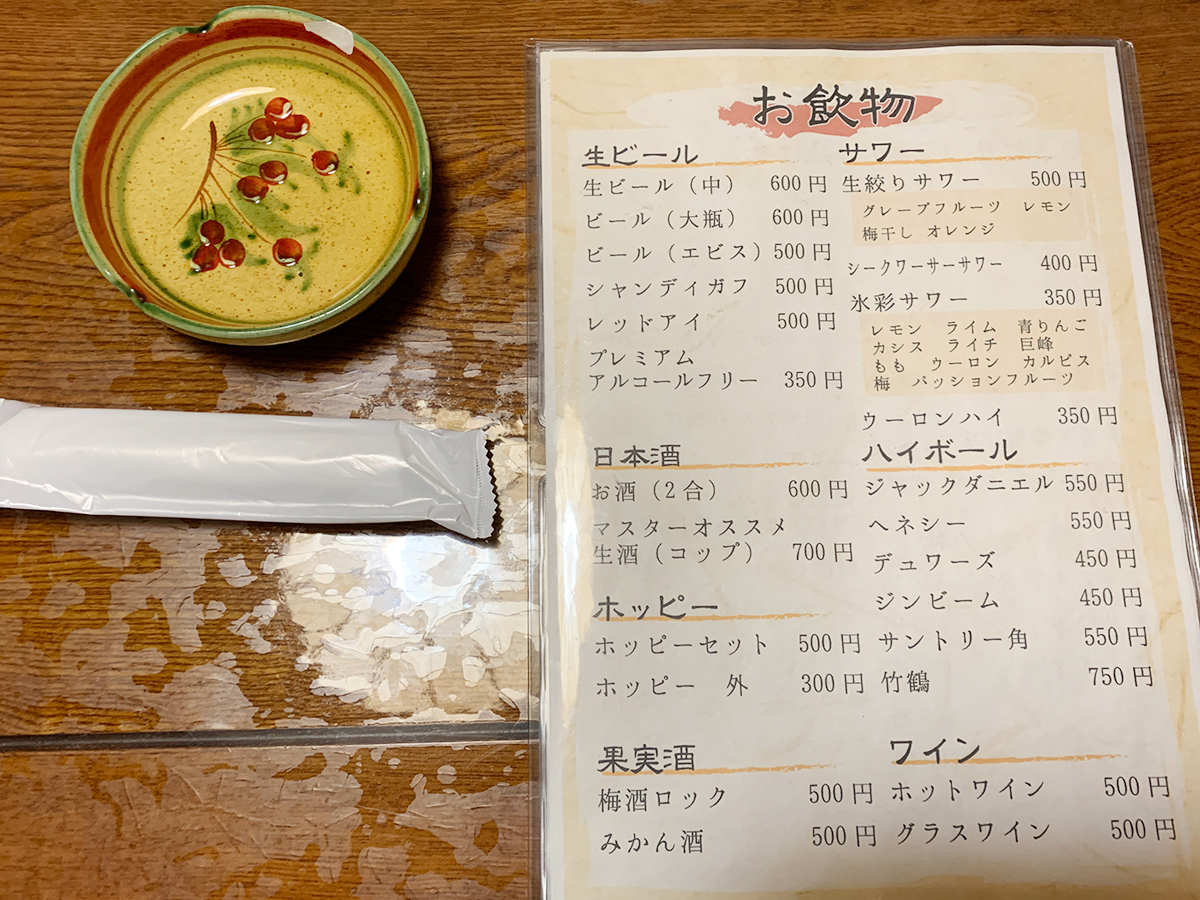 お飲物
生ビール
生ビール（中） 600円
ビール（大瓶） 600円
ビール（エビス） 500円
シャンディガフ 500円
レッドアイ 500円
プレミアム
アルコールフリー 350円
日本酒
お酒（2合） 600円
マスターオススメ
生酒（コップ） 700円
ホッピー
ホッピーセット 500円
ホッピー 外 300円
果実酒
梅酒ロック 500円
みかん酒 500円
サワー
生絞りサワー 500円
グレープフルーツ レモン
梅干し オレンジ
シークワーサーサワー 400円
氷彩サワー 350円
レモン ライム 青りんご
カシス ライチ 巨峰
もも ウーロン カルピス
梅 パッションフルーツ
ウーロンハイ 350円
ハイボール
ジャックダニエル 550円
ヘネシー 550円
デュワーズ 450円
ジンビーム 450円
サントリー角 550円
竹鶴 750円
ワイン
ホットワイン 500円
グラスワイン 500円